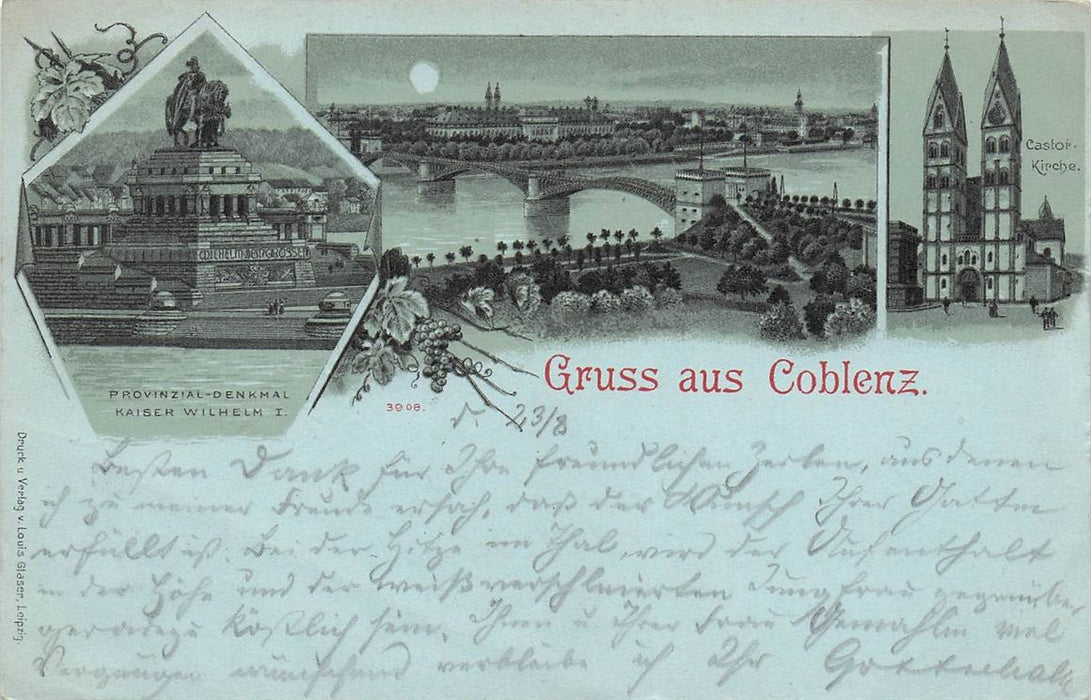 WILHELM DEM GROSSEN
PROVINZIAL-DENKMAL
KAISER WILHELM I.
Castor-
Kirche.
Gruss aus Coblenz.
3908.
Druck u Verlag v. Louis Glaser, Leipzig.
d. 23/8
Besten Dank für Ihre freundlichen Zeilen, aus denen
ich zu meiner Freude ersah, daß der Wunsch Ihrer Gattin
erfüllt ist. Bei der Hitze im Thal wird der Aufenthalt
in der Höhe und der weißverschleierten Jungfrau gegenüber
geradezu köstlich sein. Ihnen u Ihrer Frau Gemahlin viel
Vergnügen wünschend verbleibe ich Ihr Gottschalk